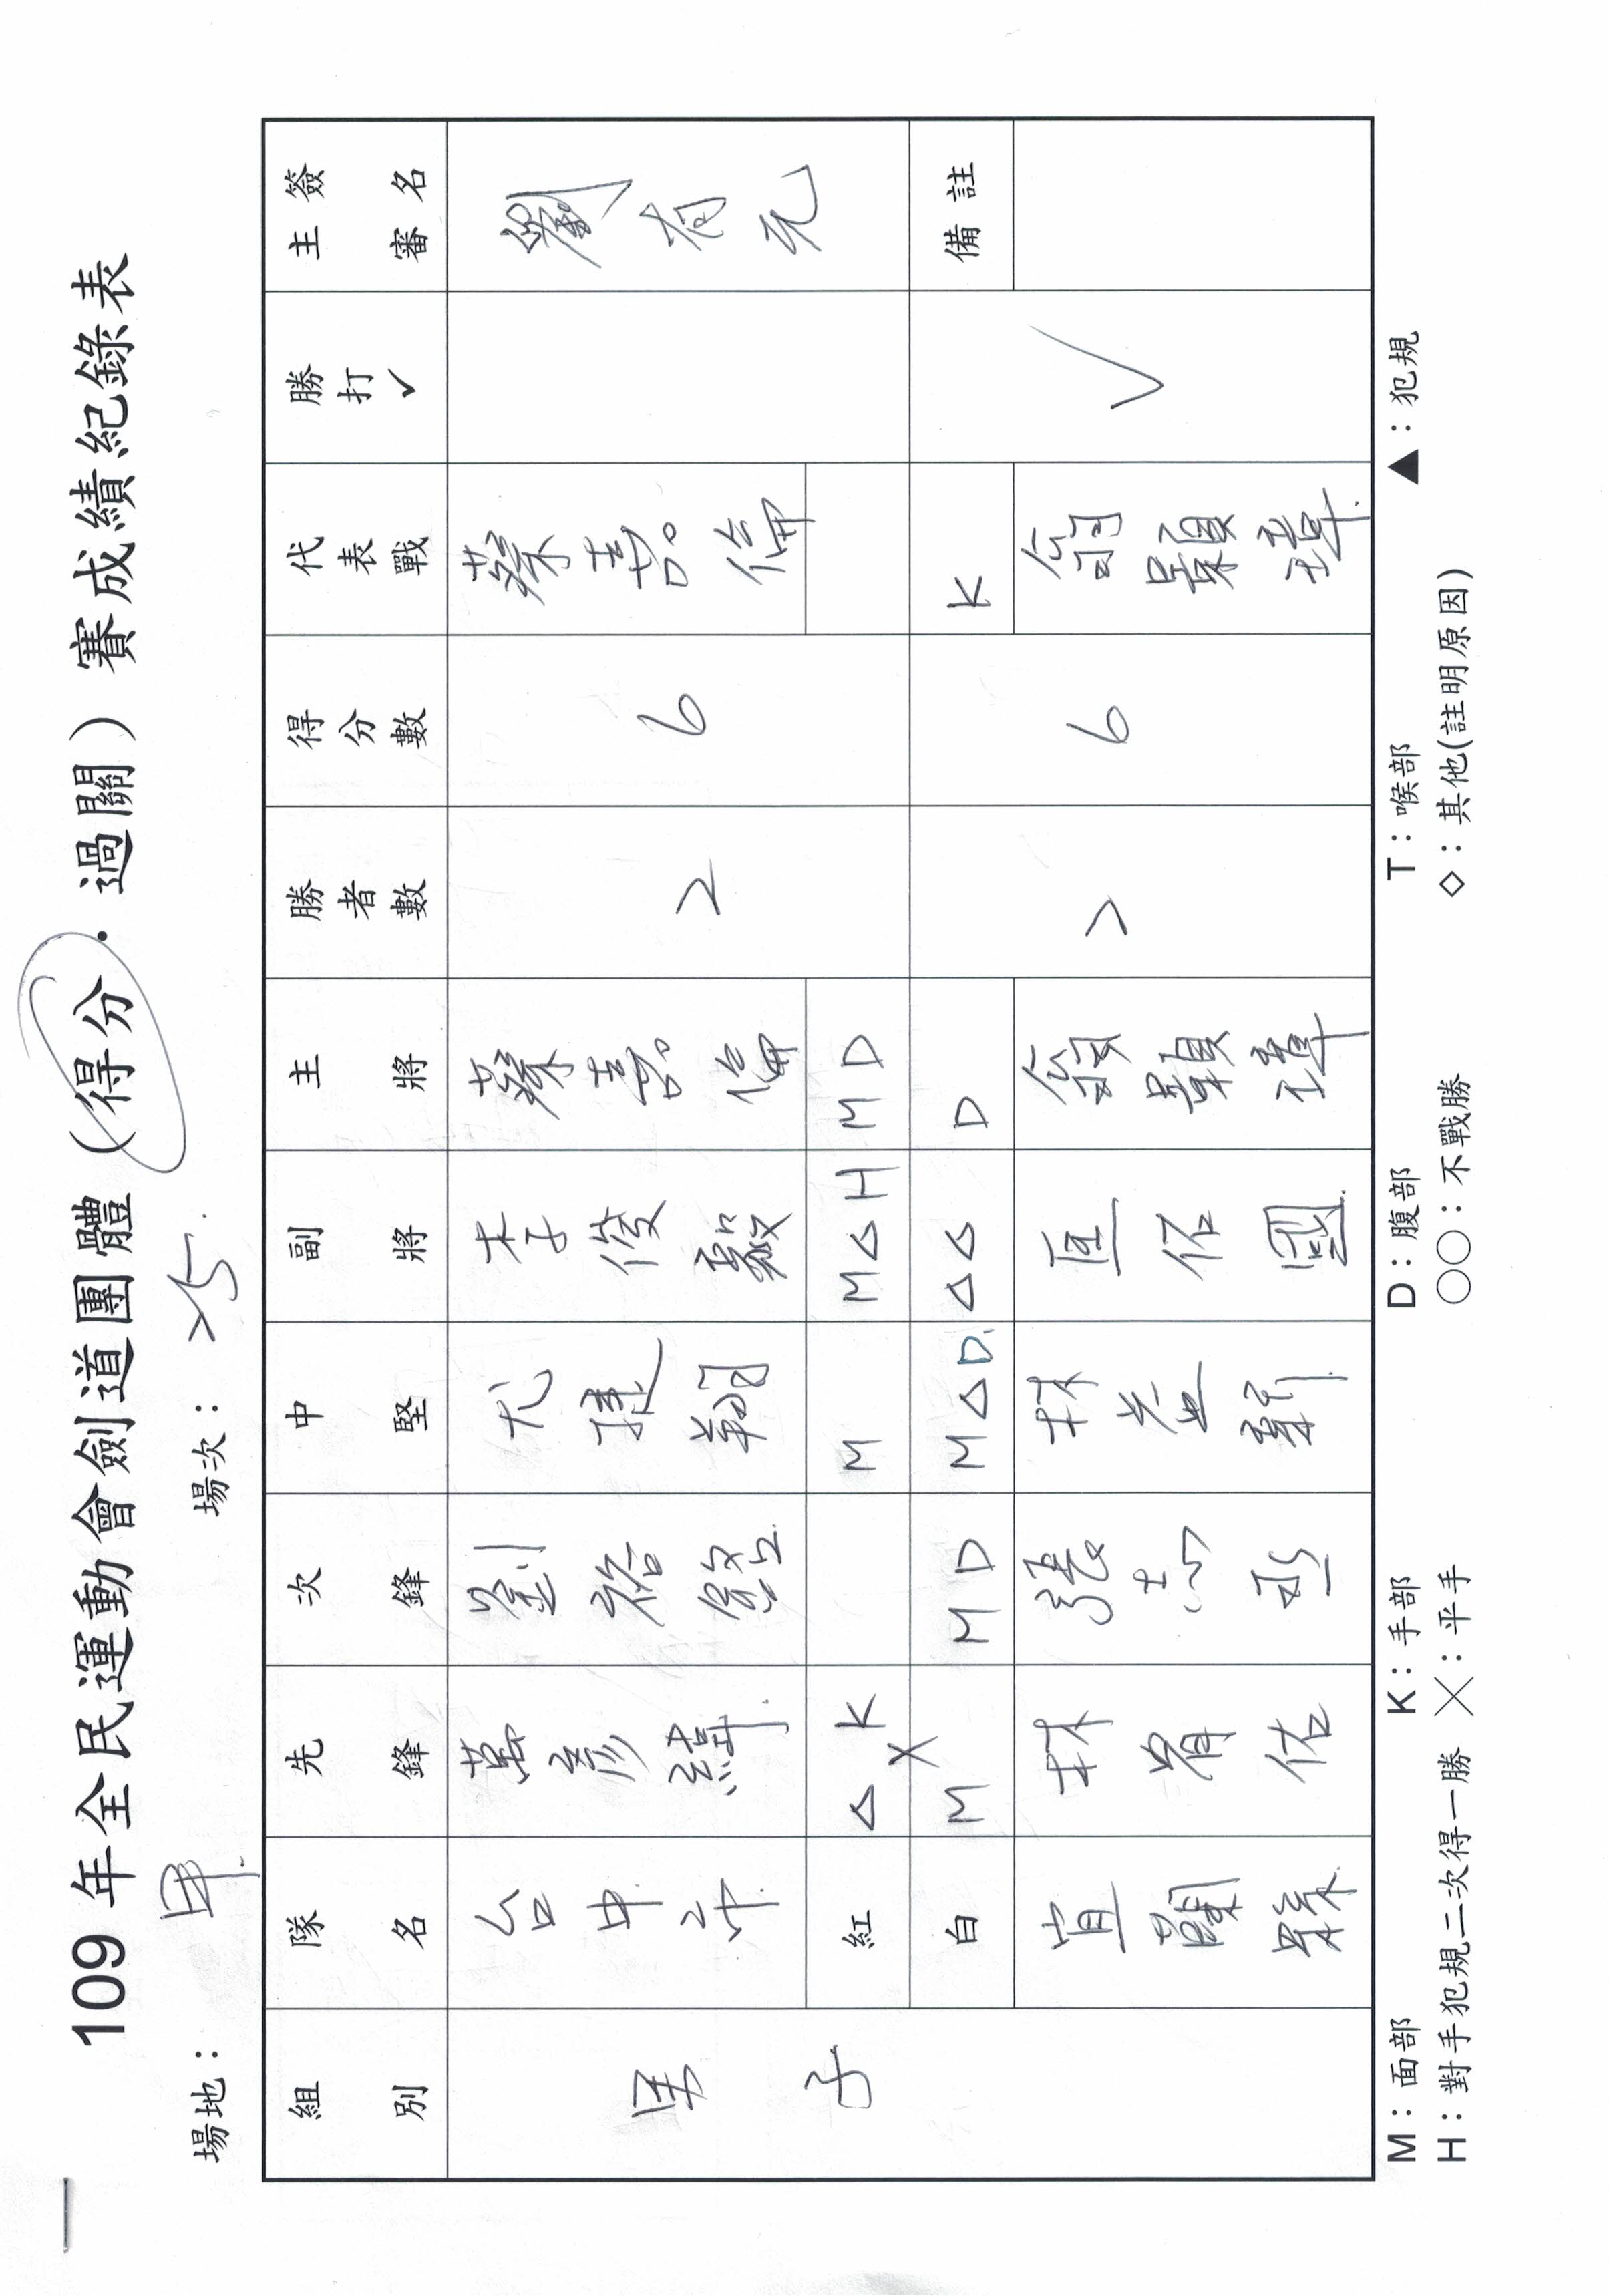 109 年全民運動會劍道團體（得分．過關）賽成績紀錄表
場地： 甲 場次： 25
組別 隊名 先鋒 次鋒 中堅 副將 主將 勝者數 得分數 代表戰 勝打✓ 主審簽名
男子
台中市 萬彥緯 劉裕 尤捷翔 李俊毅 蔡喜倫 2 6 蔡喜倫 劉有元
紅 △ K M M △ H M D
X
白 M M D M △ D △ △ D K 備註
宜蘭縣 林省佑 張志丞 林益新 匡佑國 翁顥瑋 2 6 翁顥瑋 ✓
M：面部 K：手部 D：腹部 T：喉部 ▲：犯規
H：對手犯規二次得一勝 ╳：平手 ○○：不戰勝 ◇：其他(註明原因)